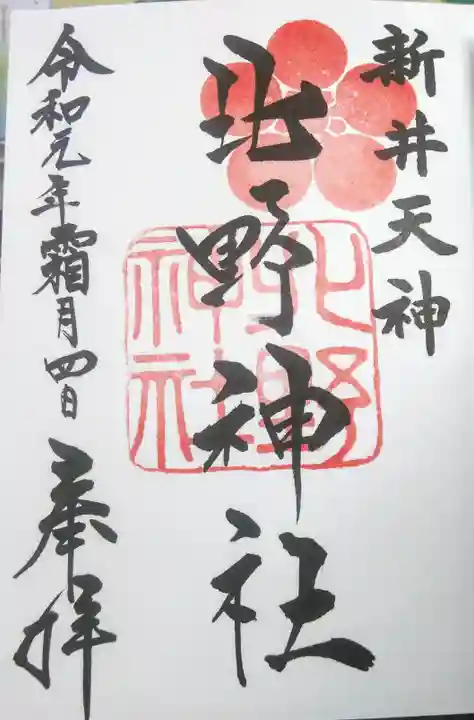 新井天神
北野神社
令和元年霜月四日
奉拝
北野
神社